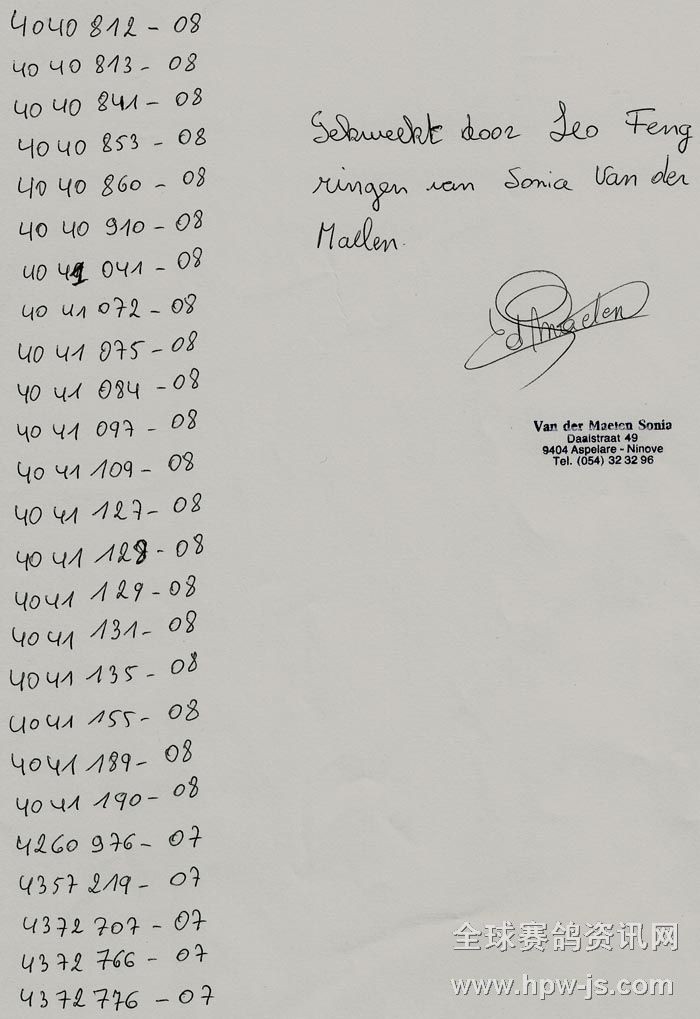 4040 812 - 08
4040 813 - 08
4040 841 - 08
4040 853 - 08
4040 860 - 08
4040 910 - 08
4041 041 - 08
4041 072 - 08
4041 075 - 08
4041 084 - 08
4041 097 - 08
4041 109 - 08
4041 127 - 08
4041 128 - 08
4041 129 - 08
4041 131 - 08
4041 135 - 08
4041 155 - 08
4041 189 - 08
4041 190 - 08
4260 976 - 07
4357 219 - 07
4372 707 - 07
4372 766 - 07
4372 776 - 07
Gekweekt door Leo Feng
ringen van Sonia Van der
Maelen.
Van der Maelen Sonia
Daalstraat 49
9404 Aspelare - Ninove
Tel. (054) 32 32 96
全球赛鸽资讯网
www.hpw-js.com